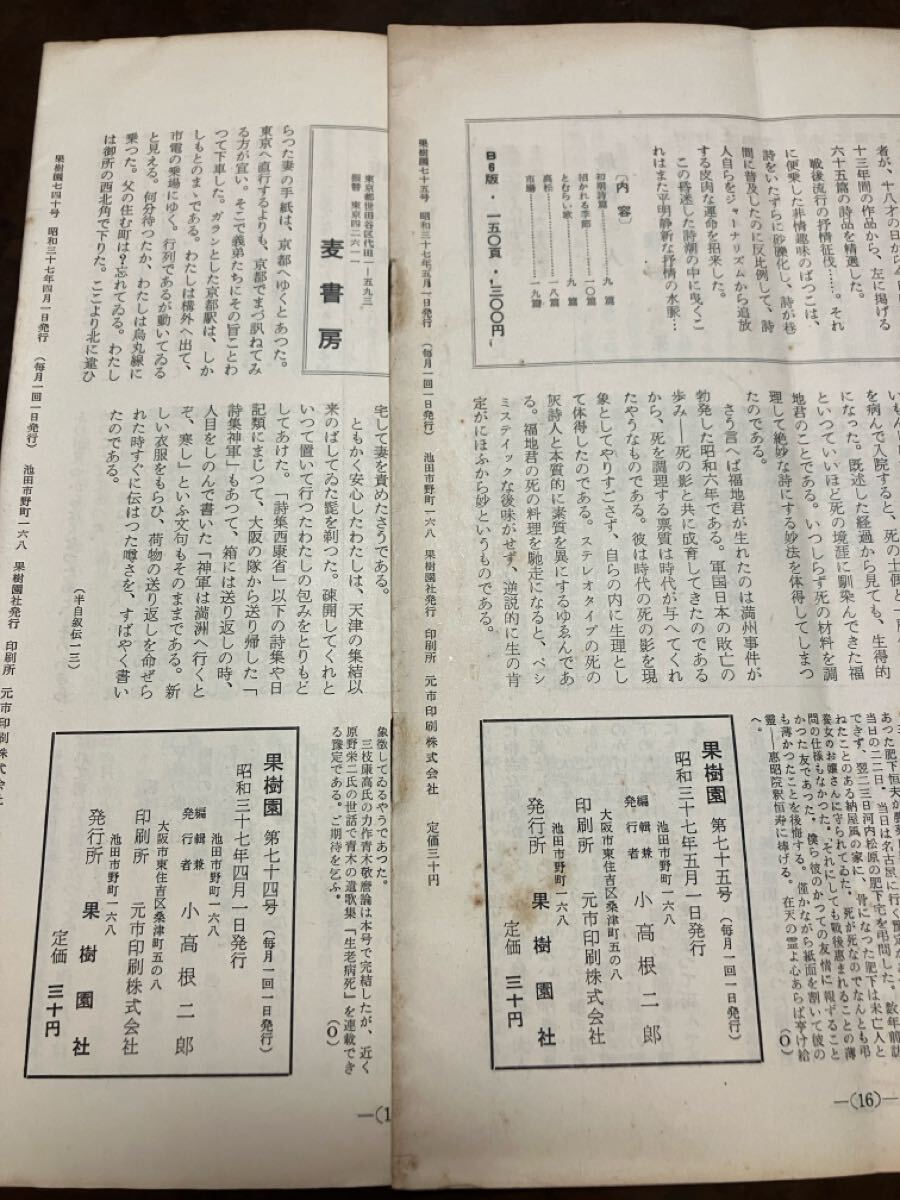 者が、十八才の日から今日
十三年間の作品から、左に掲げる
六十五篇の詩品を精選した。
戦後流行の抒情征伐……。それ
に便乗した非情趣味のばつこは、
詩をいたずらに砂礫化し、詩が巷
間に普及したのに反比例して、詩
人自らをジャーナリズムから追放
する皮肉な運命を招来した。
この昏迷した詩潮の中に曳くこ
れはまた平明静新な抒情の水脈…
〔内容〕
初期詩篇……九篇
招かれる季節……一〇篇
とむらい歌……九篇
高松……一八篇
市場……一九篇
B6版・一五〇頁・三〇〇円
を病んで入院すると、死の士偶と
になった。既述した経過から見ても、生得的
といっていいほど死の境涯に馴染んできた福
地君のことである。いつしらず死の材料を調
理して絶妙な詩にする妙法を体得してしまつ
たのである。
さう言へば福地君が生れたのは満州事件が
勃発した昭和六年である。軍国日本の敗亡の
歩み――死の影と共に成育してきたのである
から、死を調理する票質は時代が与へてくれ
たやうなものである。彼は時代の死の影を現
象としてやりすごさず、自らの内に生理とし
て体得したのである。ステレオタイプの死の
灰詩人と本質的に素質を異にするゆゑんであ
る。福地君の死の料理を馳走になると、ペシ
ミスティックな後味がせず、逆説的に生の肯
定がにほふから妙というものである。
あった肥下恒夫が
当日の二二日。当日は名古屋に行く予定が
できず、翌二三日河内松原の肥下宅を弔問した。数年前訪
ねたことのある納屋風の家に、骨になった肥下は未亡人と
養女のお嬢さんに守られてゐた。死が死なのでなんとも弔
問の仕様もなかった。それにしても戦後恵まれることの薄
かつた友であった。僕ら彼のかつての友情に報ずること
も薄かつたことを後悔する。僅かながら紙面を割いて彼の
霊――恵昭院釈恒寿に捧げる。在天の霊よ心あらば享け給
へ。
(O)
果樹園 第七十五号 (毎月一回一日発行)
昭和三十七年五月一日発行
池田市野町一六八
編輯兼
発行者 小高根二郎
大阪市東住吉区桑津町五の八
印刷所 元市印刷株式会社
池田市野町一六八
発行所 果樹園社
定価 三十円
―(16)―
果樹園七十五号 昭和三十七年五月一日発行 (毎月一回一日発行) 池田市野町一六八 果樹園社発行 印刷所 元市印刷株式会社 定価三十円
東京都世田谷区代田一―五九三
振替 東京四二六一一
麦書房
らつた妻の手紙は、京都へゆくとあつた。
東京へ直行するよりも、京都でまづ訊ねてみ
る方が宜い。そこで義弟たちにその旨ことわ
つて下車した。ガランとした京都駅は、しか
しもとのまゝである。わたしは構外へ出て、
市電の乗場にゆく。行列であるが動いてゐる
と見える。何分待つたか、わたしは烏丸線に
乗つた。父の住む町は?忘れてゐる。わたし
は御所の西北角で下りた。ここより北に違ひ
宅して妻を責めたさうである。
ともかく安心したわたしは、天津の集結以
来のばしてゐた髭を剃つた。疎開してくれと
いつて置いて行つたわたしの包みをとりもど
してあけた。「詩集西康省」以下の詩集や日
記類にまじつて、大阪の隊から送り帰した「
詩集神軍」もあつて、箱には送り返しの時、
人目をしのんで書いた「神軍は満洲へ行くと
ぞ、寒し」といふ文句もそのままである。新
しい衣服をもらひ、荷物の送り返しを命ぜら
れた時すぐに伝はつた噂さを、すばやく書い
たのである。
(半自叙伝一三)
象徴してゐるやうであつた。
三枝康高氏の力作青木敬麿論は本号で完結したが、近く
原野栄二氏の世話で青木の遺歌集「生老病死」を連載でき
る豫定である。ご期待を乞ふ。
(O)
果樹園 第七十四号 (毎月一回一日発行)
昭和三十七年四月一日発行
池田市野町一六八
編輯兼
発行者 小高根二郎
大阪市東住吉区桑津町五の八
印刷所 元市印刷株式会社
池田市野町一六八
発行所 果樹園社
定価 三十円
―(1
果樹園七四十号 昭和三十七年四月一日発行 (毎月一回一日発行) 池田市野町一六八 果樹園社発行 印刷所 元市印刷株式会社